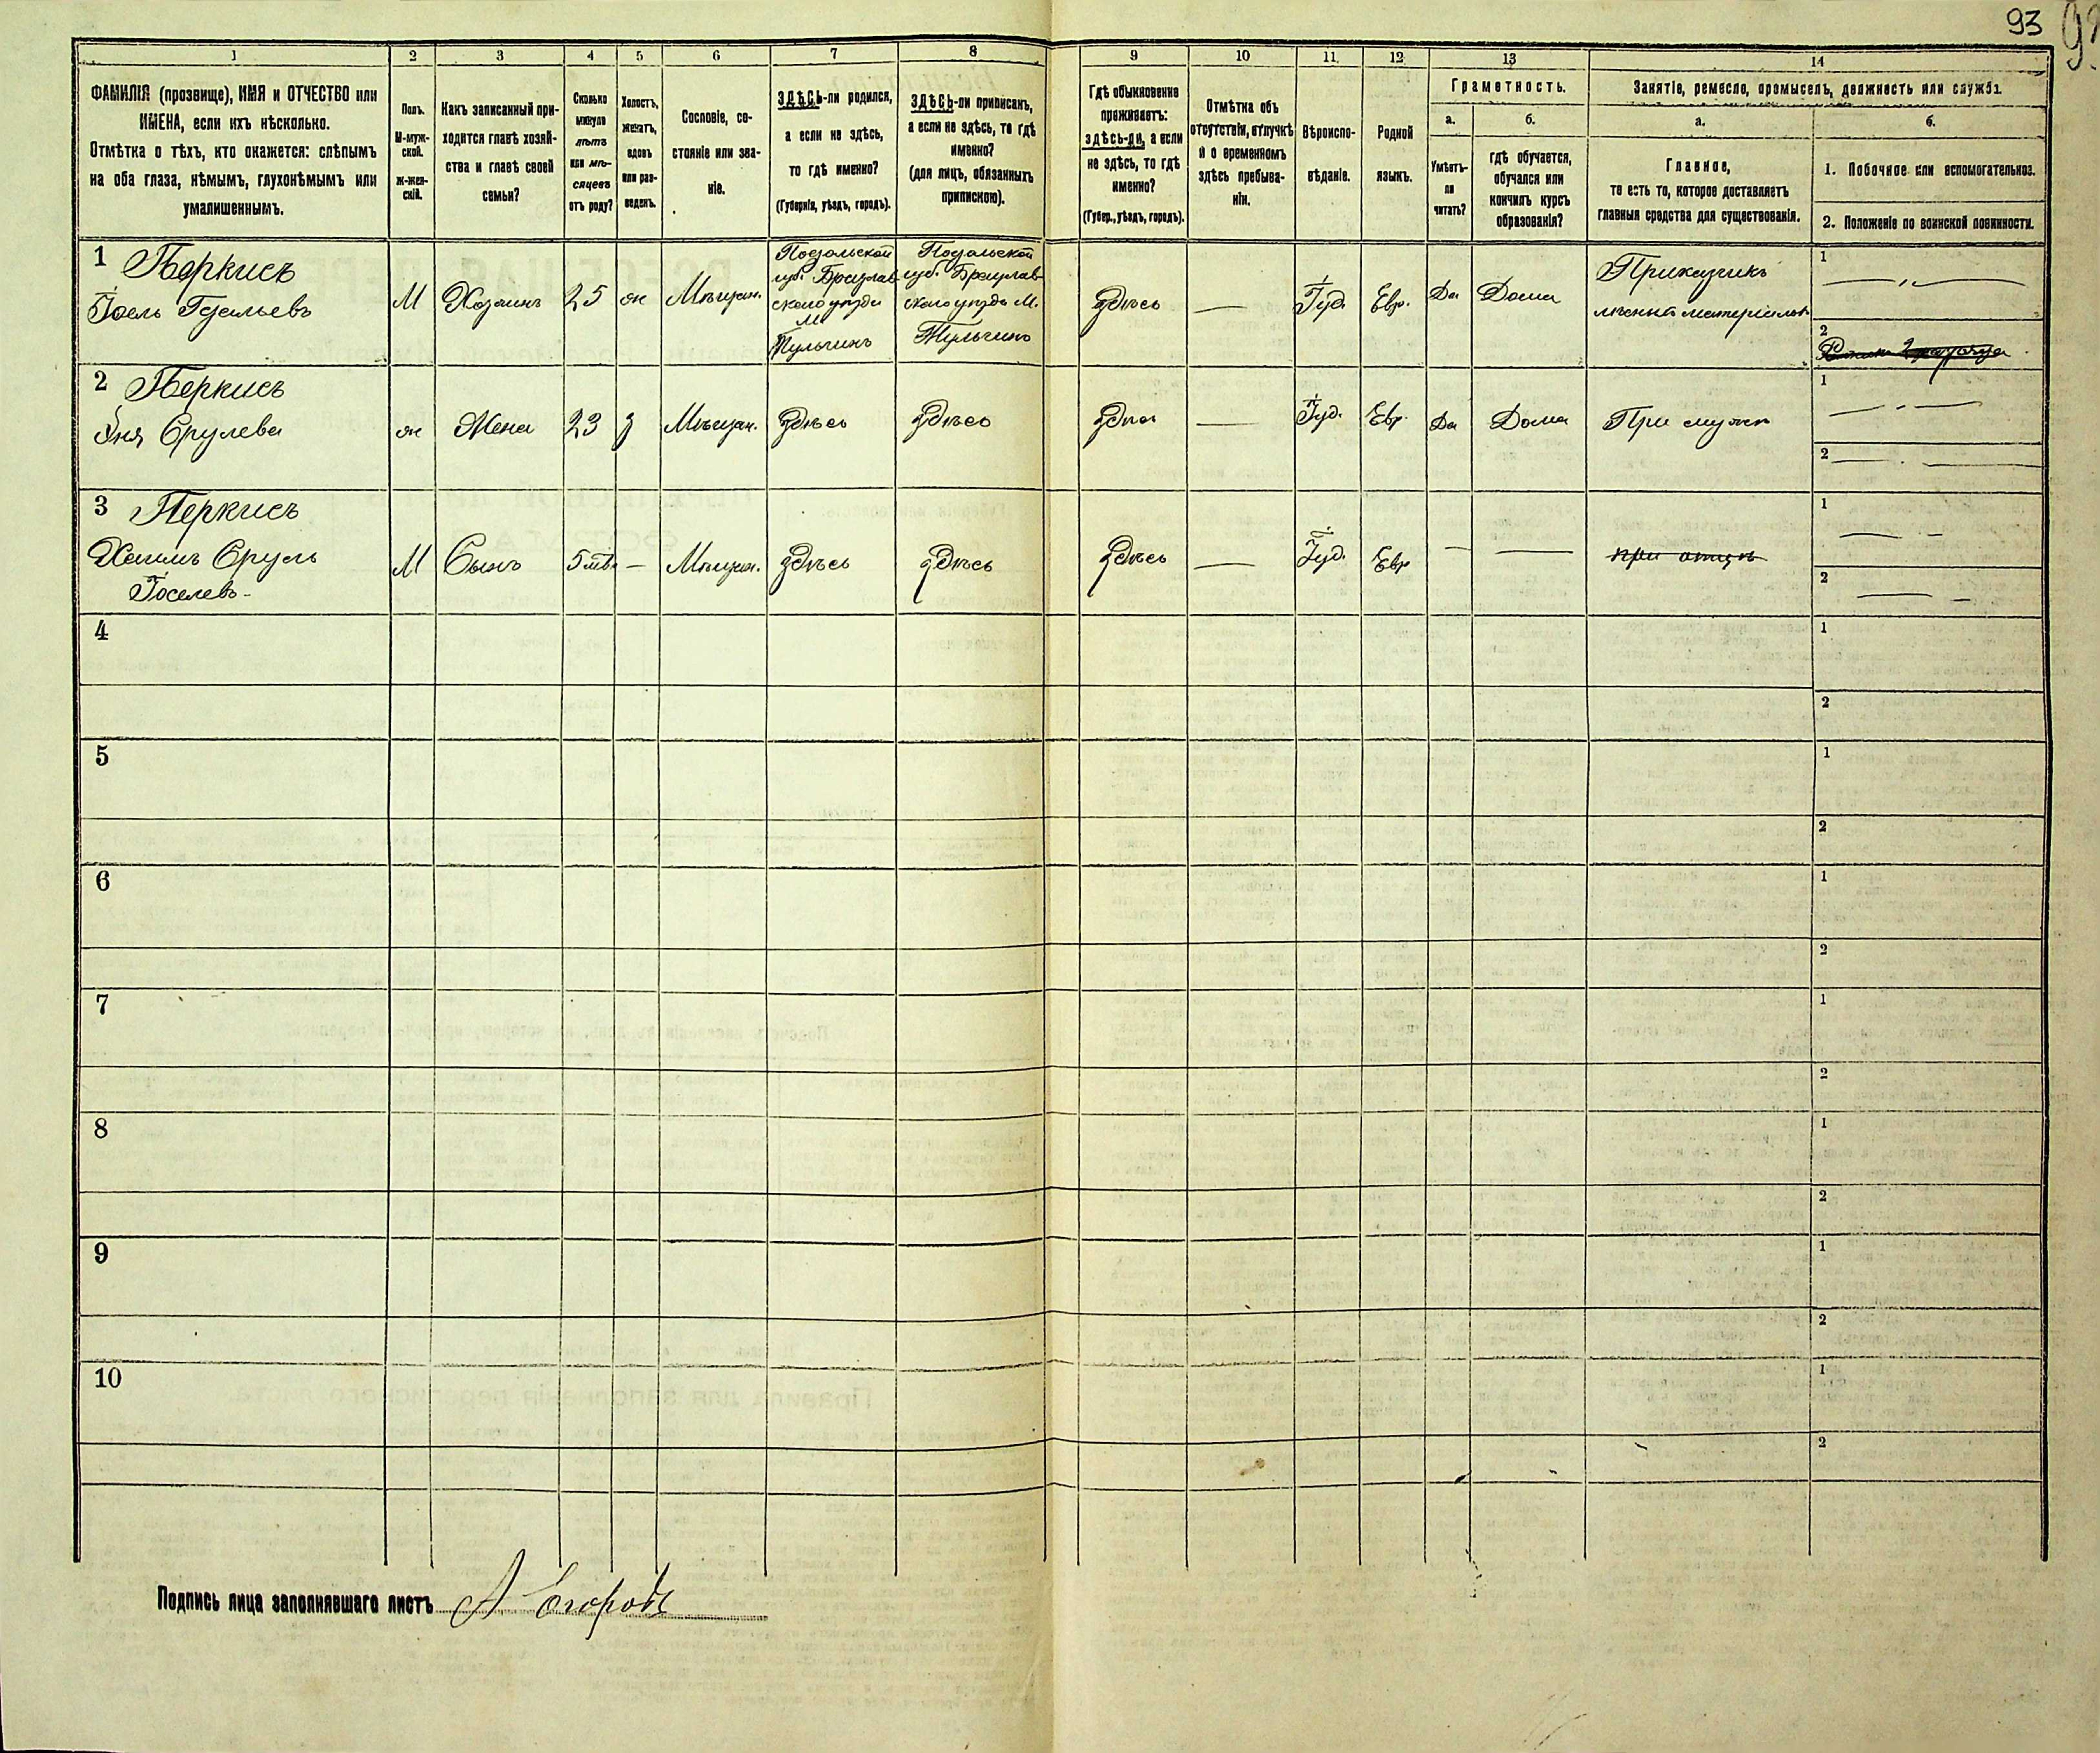 93
1 2 3 4 5 6 7 8 9 10 11 12 13 14
ФАМИЛІЯ (прозвище), ИМЯ и ОТЧЕСТВО или
ИМЕНА, если ихъ нѣсколько.
Отмѣтка о тѣхъ, кто окажется: слѣпымъ
на оба глаза, нѣмымъ, глухонѣмымъ или
умалишеннымъ.
Полъ.
М-муж-
ской.
Ж-жен-
скій.
Какъ записанный при-
ходится главѣ хозяй-
ства и главѣ своей
семьи?
Сколько
минуло
лѣтъ
или мѣ-
сяцевъ
отъ роду?
Холостъ,
женатъ,
вдовъ
или раз-
веденъ.
Сословіе, со-
стояніе или зва-
ніе.
ЗДѢСЬ-ли родился,
а если не здѣсь,
то гдѣ именно?
(Губернія, уѣздъ, городъ).
ЗДѢСЬ-ли приписанъ,
а если не здѣсь, то гдѣ
именно?
(для лицъ, обязанныхъ
припискою).
Гдѣ обыкновенно
проживаетъ:
здѣсь-ли, а если
не здѣсь, то гдѣ
именно?
(Губер., уѣздъ, городъ).
Отмѣтка объ
отсутствіи, отлучкѣ
и о временномъ
здѣсь пребыва-
ніи.
Вѣроиспо-
вѣданіе.
Родной
языкъ.
Грамотность.
а.
Умѣетъ-
ли
читать?
б.
гдѣ обучается,
обучался или
кончилъ курсъ
образованія?
Занятіе, ремесло, промыселъ, должность или служба.
а.
Главное,
то есть то, которое доставляетъ
главныя средства для существованія.
б.
1. Побочное или вспомогательное.
2. Положеніе по воинской повинности.
1 Перкисъ
Іоель
М Хозяинъ 25 ж Мѣщан.
Подольской
губ. Брацлав-
скаго уѣзда
М.
Тульчинъ
Подольской
губ. Брацлав-
скаго уѣзда М.
Тульчинъ
здѣсь — Іуд. Евр. Да Дома
Приказчикъ
лѣсныхъ матеріаловъ
1
2
2 Перкисъ
Срулева
ж Жена 23 з Мѣщан. здѣсь здѣсь здѣсь — Іуд. Евр. Да Дома При мужѣ
1
2
3 Перкисъ
Хаимъ Сруль
Іоселевъ
М Сынъ 5 — Мѣщан. здѣсь здѣсь здѣсь — Іуд. Евр. — — при отцѣ
1
2
4 1
2
5 1
2
6 1
2
7 1
2
8 1
2
9 1
2
10 1
2
Подпись лица заполнявшаго листъ